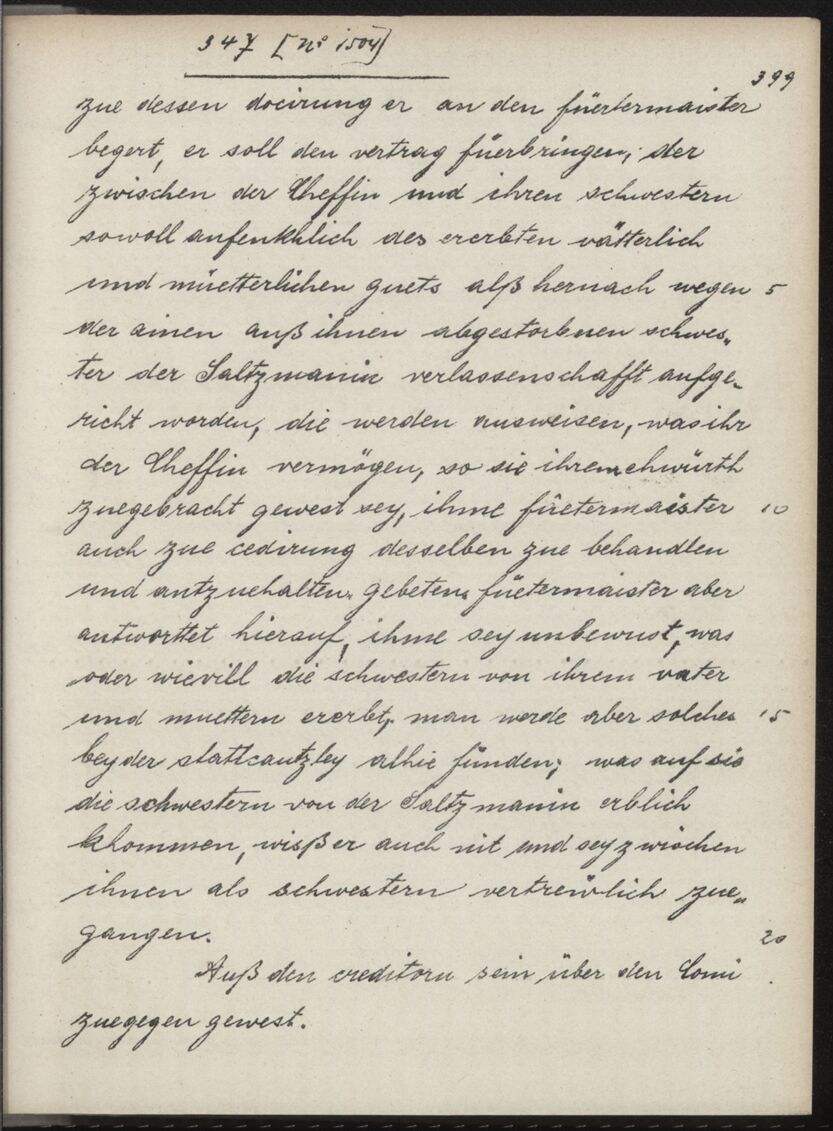 347 [nº 1504]
399
zue dessen docirung er an den füertermaister
begert, er soll den vertrag füerbringen, der
zwischen der Cheffin und ihren schwestern
sowoll anfenkhlich des ererbten vätterlich
und müetterlichen guets alß hernach wegen 5
der ainen auß ihnen abgestorbnen schwes„
ter der Saltzmanin verlassenschafft aufge„
richt worden, die werden ausweisen, was ihr
der Cheffin vermögen, so sie ihrem ehwürth
zuegebracht gewest sey, ihme füetermaister 10
auch zue cedirung desselben zue behandlen
und antzuehalten gebeten, füetermaister aber
antworttet hierauf, ihme sey unbewust, was
oder wievill die schwestern von ihrem vater
und muettern ererbt, man werde aber solches 15
bey der stattcantzley alhie fünden; was auf sie
die schwestern von der Saltzmanin erblich
khommen, wisß er auch nit und sey zwischen
ihnen als schwestern vertreẅlich zue„
gangen. 20
Auß den creditorn sein über den Comi
zuegegen gewest.